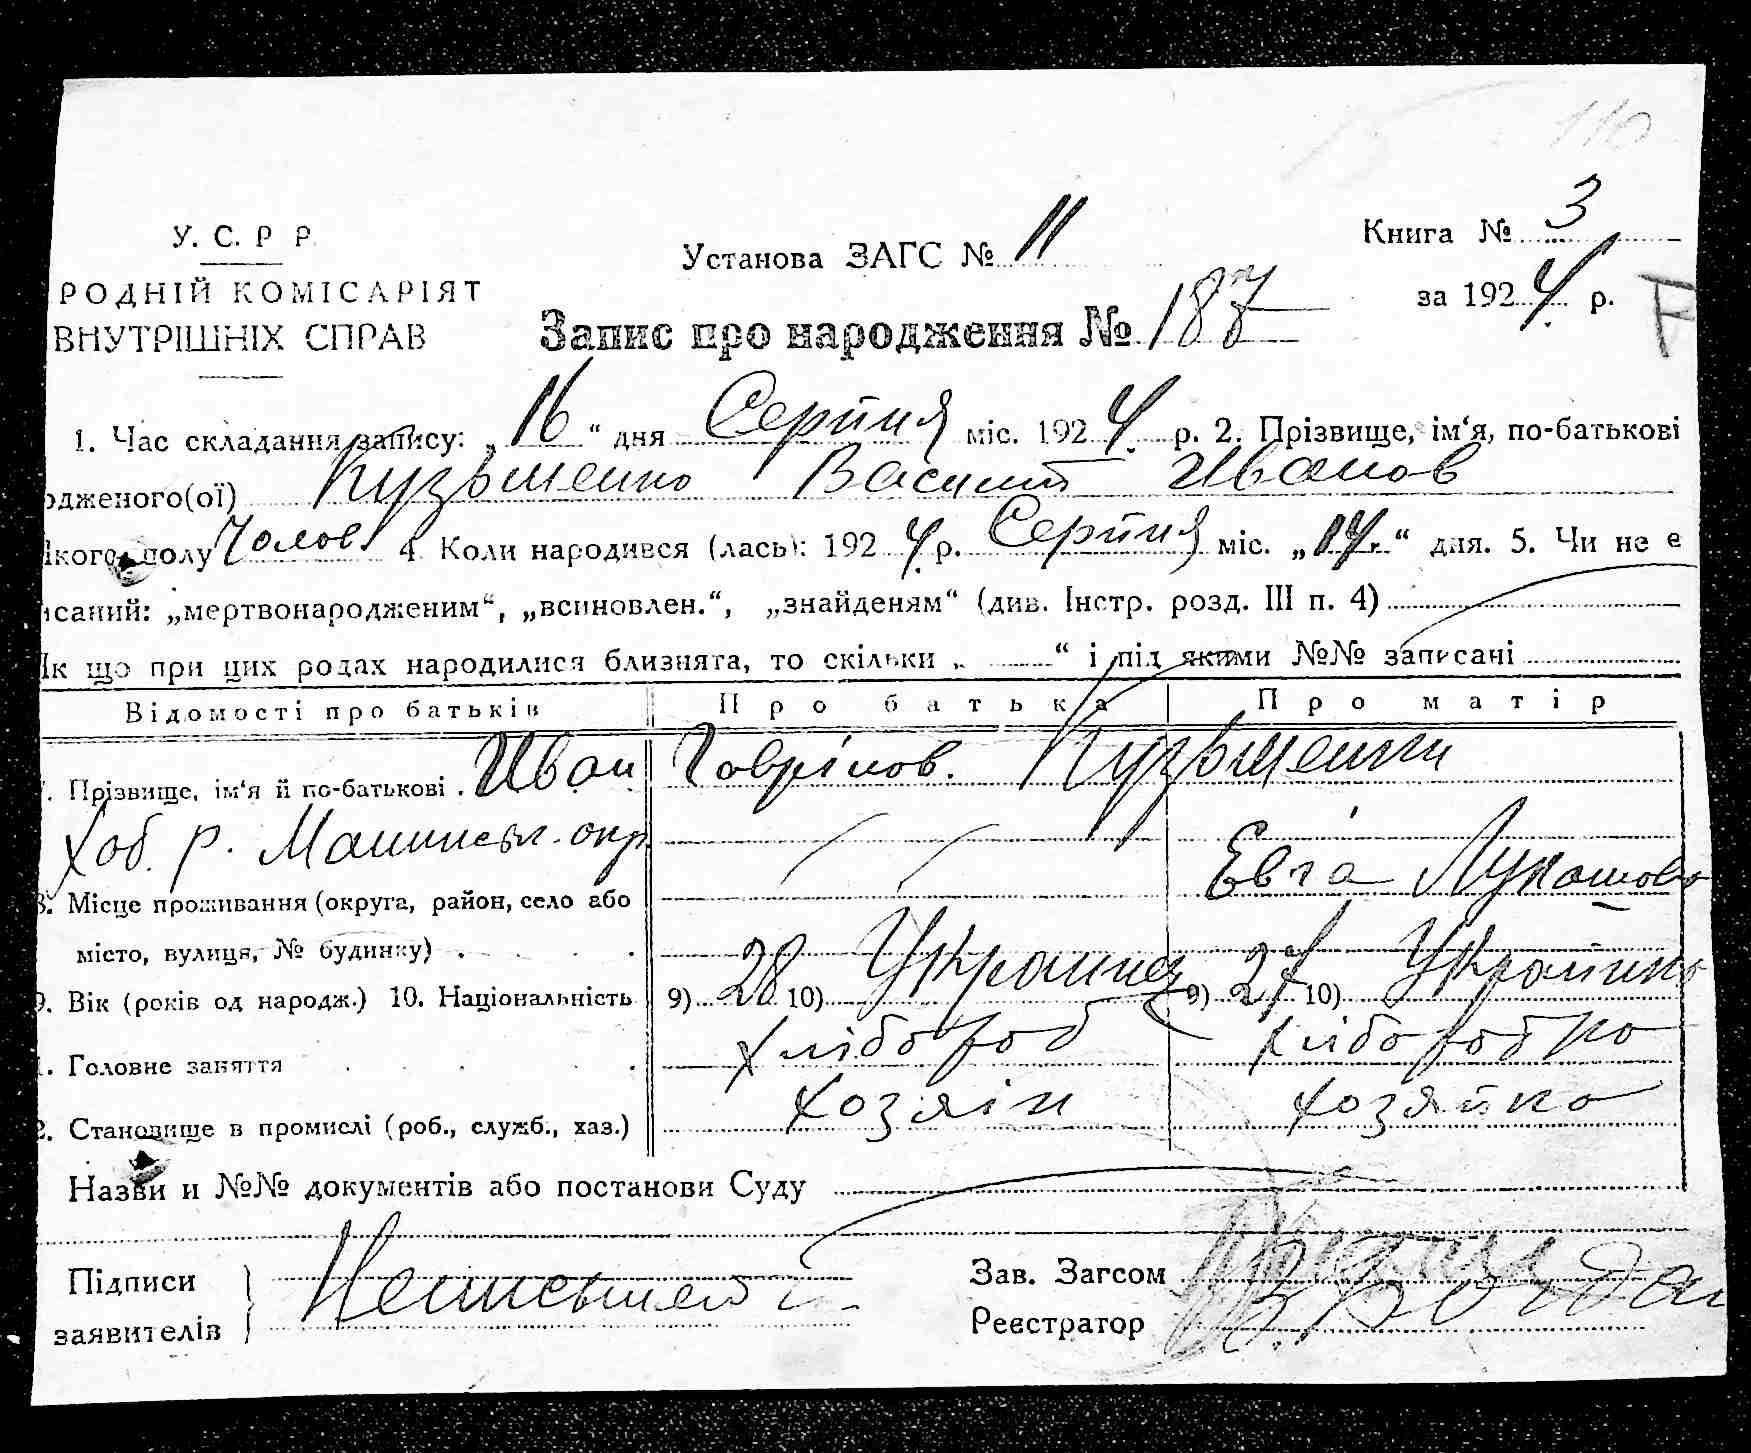 110
У. С. Р Р
РОДНІЙ КОМІСАРІЯТ
ВНУТРІШНІХ СПРАВ
Установа ЗАГС № 11
Книга № 3
за 1924 р.
Запис про народження № 187
1. Час складання запису: „16“ дня Серпня міс. 1924 р. 2. Прізвище, ім‘я, по-батькові
одженого(ої) Кузьменко Василь Иванов
якого полу Чолов. 4 Коли народився (лась): 1924 р. Серпня міс. „14.“ дня. 5. Чи не є
исаний: „мертвонародженим“, „всиновлен.“, „знайденям“ (див. Інстр. розд. III п. 4)
Як що при цих родах народилися близнята, то скільки „ “ і під якими №№ записані
Відомості про батьків Про батька Про матір
7. Прізвище, ім‘я й по-батькові . Иван Гаврілов. Кузьменки
Хоб. р. окр. Евга Лукашова
8. Місце проживання (округа, район, село або
місто, вулиця, № будинку)
9. Вік (років од народж.) 10. Національність 9) 28 10) Украинец 9) 27 10) Украйинка
1. Головне заняття хлібороб хліборобка
2. Становище в промислі (роб., служб., хаз.) хозяін хозяйка
Назви и №№ документів або постанови Суду
Підписи
заявителів
Неписьменій
Зав. Загсом
Реєстратор